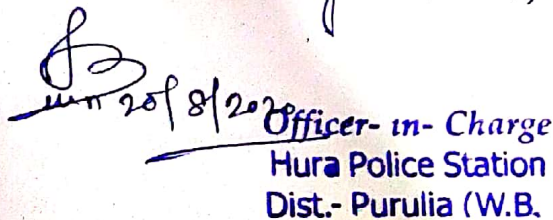 20/8/2020
Officer- in- Charge
Hura Police Station
Dist.- Purulia (W.B.